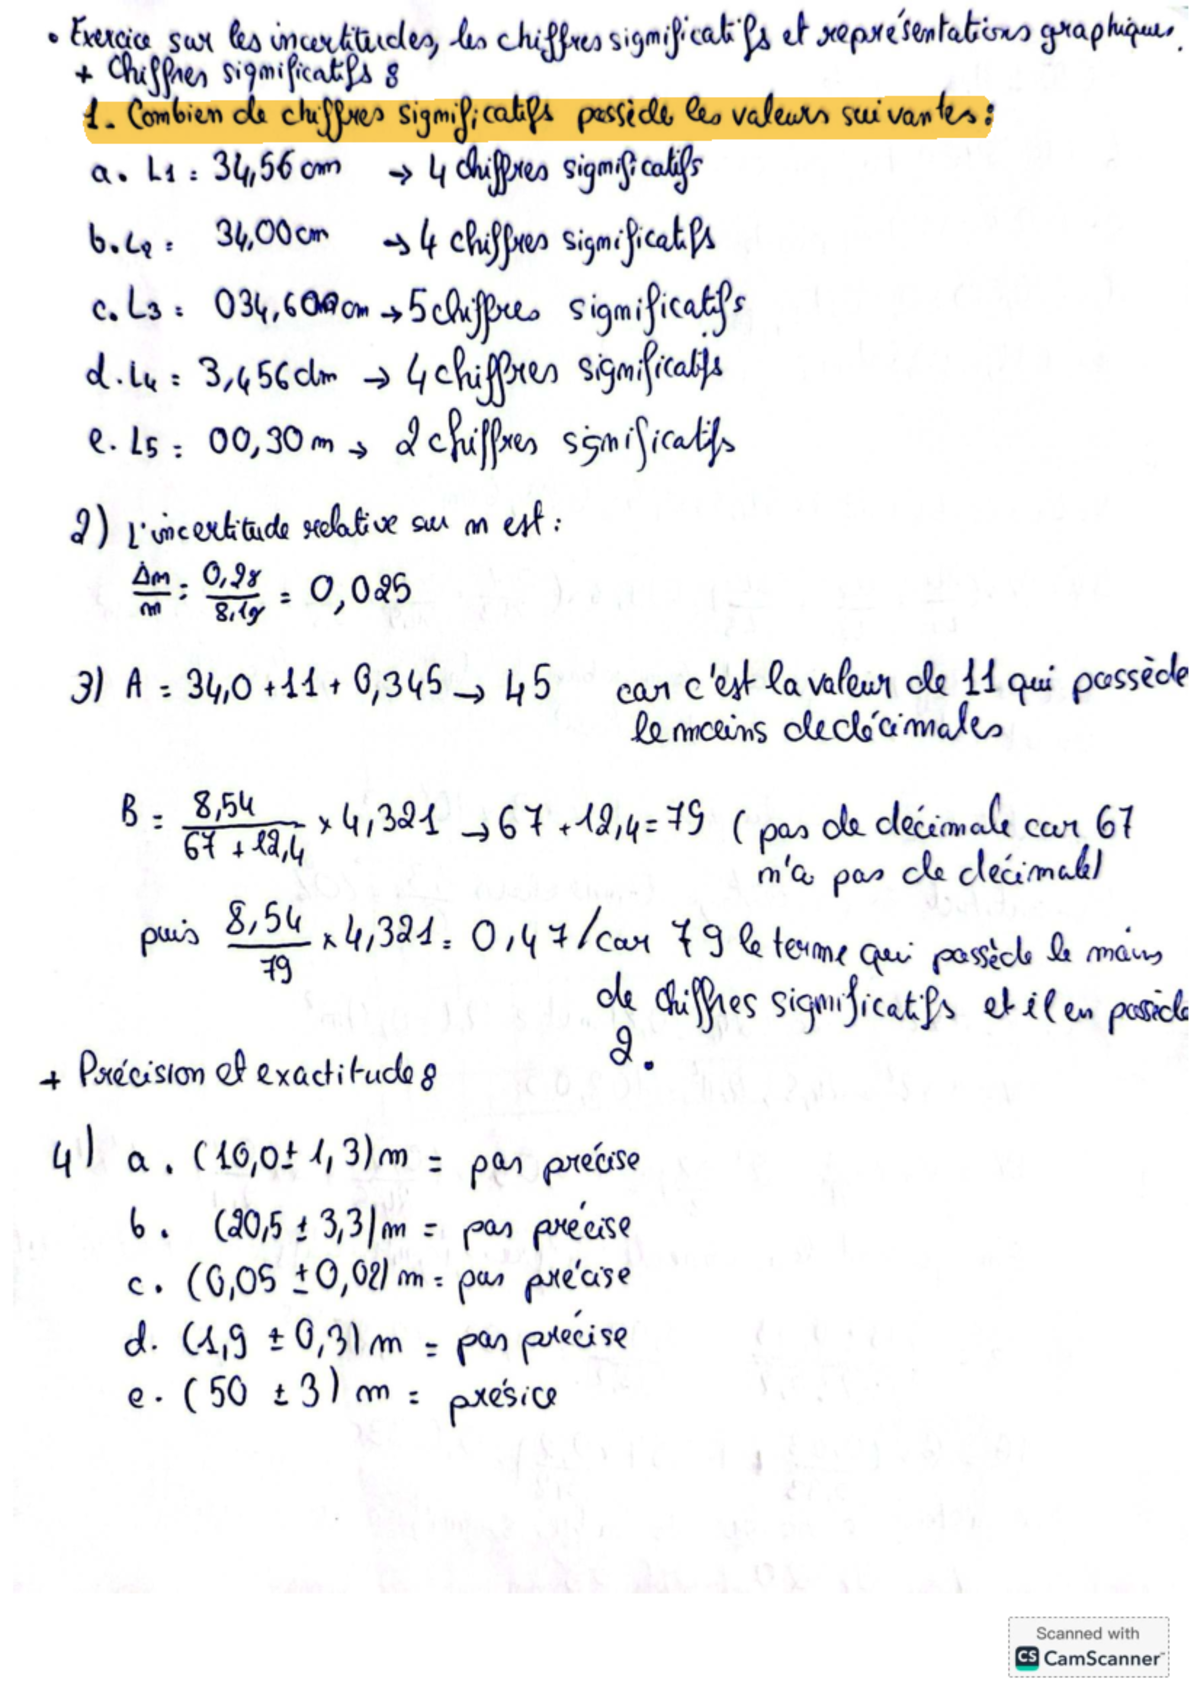 • Exercice sur les incertitudes, les chiffres significatifs et représentations graphiques.
+ Chiffres significatifs :
1. Combien de chiffres significatifs possède les valeurs suivantes :
a. L1 = 34,56 cm → 4 chiffres significatifs
b. L2 = 34,00 cm → 4 chiffres significatifs
c. L3 = 034,600 cm → 5 chiffres significatifs
d. L4 = 3,456 dm → 4 chiffres significatifs
e. L5 = 00,30 m → 2 chiffres significatifs
2) L'incertitude relative sur m est :
Δm/m = 0,2g/8,1g = 0,025
3) A = 34,0 + 11 + 0,345 → 45 car c'est la valeur de 11 qui possède
le moins de décimales
B = 8,54/(67 + 12,4) × 4,321 → 67 + 12,4 = 79 (pas de décimale car 67
n'a pas de décimale)
puis 8,54/79 × 4,321 = 0,47 / car 79 le terme qui possède le moins
de chiffres significatifs et il en possède
2.
+ Précision et exactitude :
4) a. (10,0 ± 1,3) m = pas précise
b. (20,5 ± 3,3) m = pas précise
c. (0,05 ± 0,02) m = pas précise
d. (1,9 ± 0,3) m = pas précise
e. (50 ± 3) m = présice
Scanned with
CS CamScanner